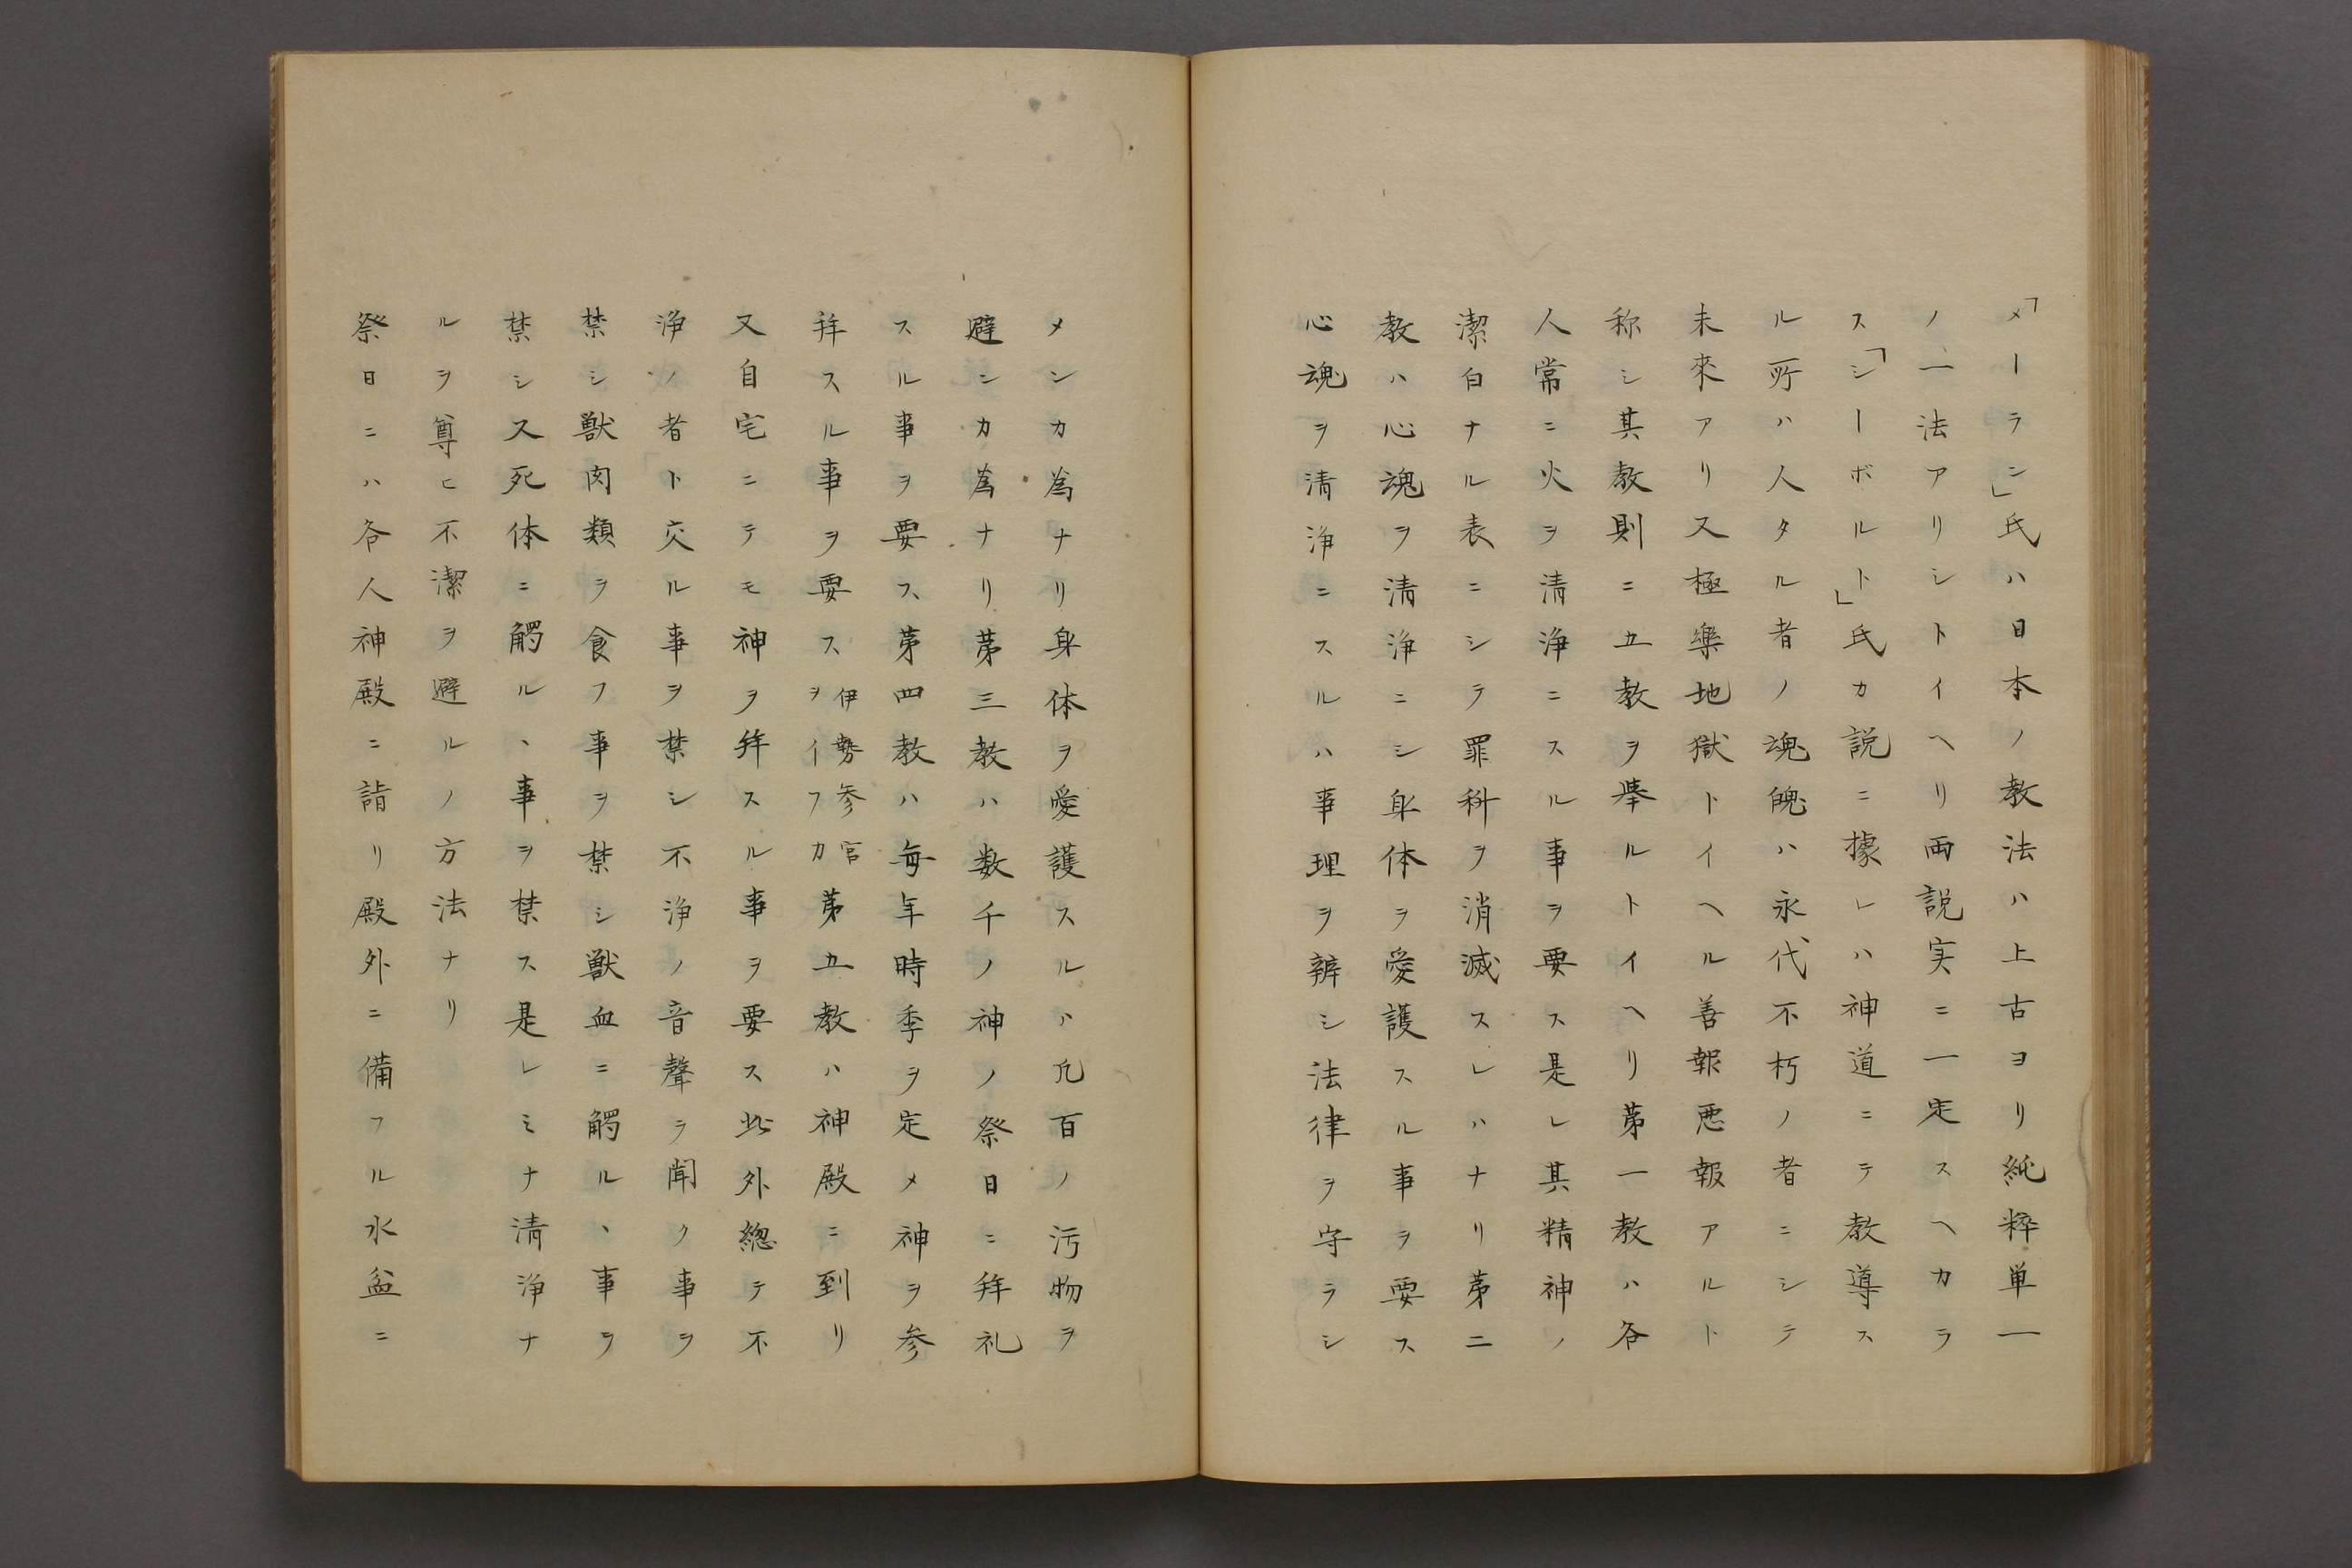 「メーラン」氏ハ日本ノ教法ハ上古ヨリ純粋単一
ノ一法アリシトイヘリ両説実ニ一定スヘカラ
ス「シーボルト」氏カ説ニ據レハ神道ニテ教導ス
ル所ハ人タル者ノ魂魄ハ永代不朽ノ者ニシテ
未來アリ又極樂地獄トイヘル善報悪報アルト
称シ其教則ニ五教ヲ舉ルトイヘリ苐一教ハ各
人常ニ火ヲ清浄ニスル事ヲ要ス是レ其精神ノ
潔白ナル表ニシテ罪科ヲ消滅スレハナリ苐二
教ハ心魂ヲ清浄ニシ身体ヲ愛護スル事ヲ要ス
心魂ヲ清浄ニスルハ事理ヲ辨シ法律ヲ守ラシ
メンカ為ナリ身体ヲ愛護スルハ凢百ノ汚物ヲ
避ンカ為ナリ苐三教ハ数千ノ神ノ祭日ニ拜礼
スル事ヲ要ス苐四教ハ毎年時季ヲ定メ神ヲ参
拜スル事ヲ要ス伊勢参宮ヲイフカ苐五教ハ神殿ニ到リ
又自宅ニテモ神ヲ拜スル事ヲ要ス此外總テ不
浄ノ者ト交ル事ヲ禁シ不浄ノ音聲ヲ聞ク事ヲ
禁シ獣肉類ヲ食フ事ヲ禁シ獣血ニ觸ルヽ事ヲ
禁シ又死体ニ觸ルヽ事ヲ禁ス是レミナ清浄ナ
ルヲ尊ヒ不潔ヲ避ルノ方法ナリ
祭日ニハ各人神殿ニ詣リ殿外ニ備フル水盆ニ